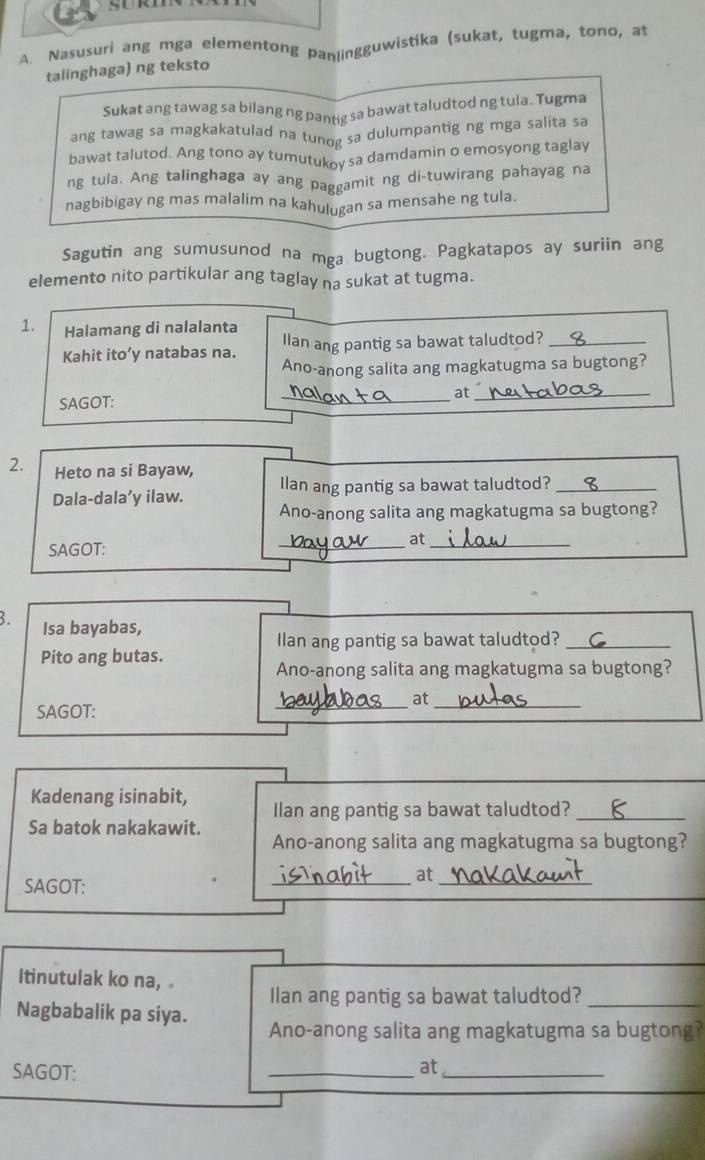 A. Nasusuri ang mga elementong panlingguwistika (sukat, tugma, tono, at
talinghaga) ng teksto
Sukat ang tawag sa bilang ng pantig sa bawat taludtod ng tula. Tugma
ang tawag sa magkakatulad na tunog sa dulumpantig ng mga salita sa
bawat talutod. Ang tono ay tumutukoy sa damdamin o emosyong taglay
ng tula. Ang talinghaga ay ang paggamit ng di-tuwirang pahayag na
nagbibigay ng mas malalim na kahulugan sa mensahe ng tula.
Sagutin ang sumusunod na mga bugtong. Pagkatapos ay suriin ang
elemento nito partikular ang taglay na sukat at tugma.
1. Halamang di nalalanta
Kahit ito'y natabas na.
SAGOT:
Ilan ang pantig sa bawat taludtod? 8
Ano-anong salita ang magkatugma sa bugtong?
nalanta at natabas
2. Heto na si Bayaw,
Dala-dala'y ilaw.
SAGOT:
Ilan ang pantig sa bawat taludtod? 8
Ano-anong salita ang magkatugma sa bugtong?
bayaw at ilaw
3. Isa bayabas,
Pito ang butas.
SAGOT:
Ilan ang pantig sa bawat taludtod? 6
Ano-anong salita ang magkatugma sa bugtong?
baybabas at butas
Kadenang isinabit,
Sa batok nakakawit.
SAGOT:
Ilan ang pantig sa bawat taludtod? 8
Ano-anong salita ang magkatugma sa bugtong?
isinabit at nakakawit
Itinutulak ko na,
Nagbabalik pa siya.
SAGOT:
Ilan ang pantig sa bawat taludtod?
Ano-anong salita ang magkatugma sa bugtong?
at